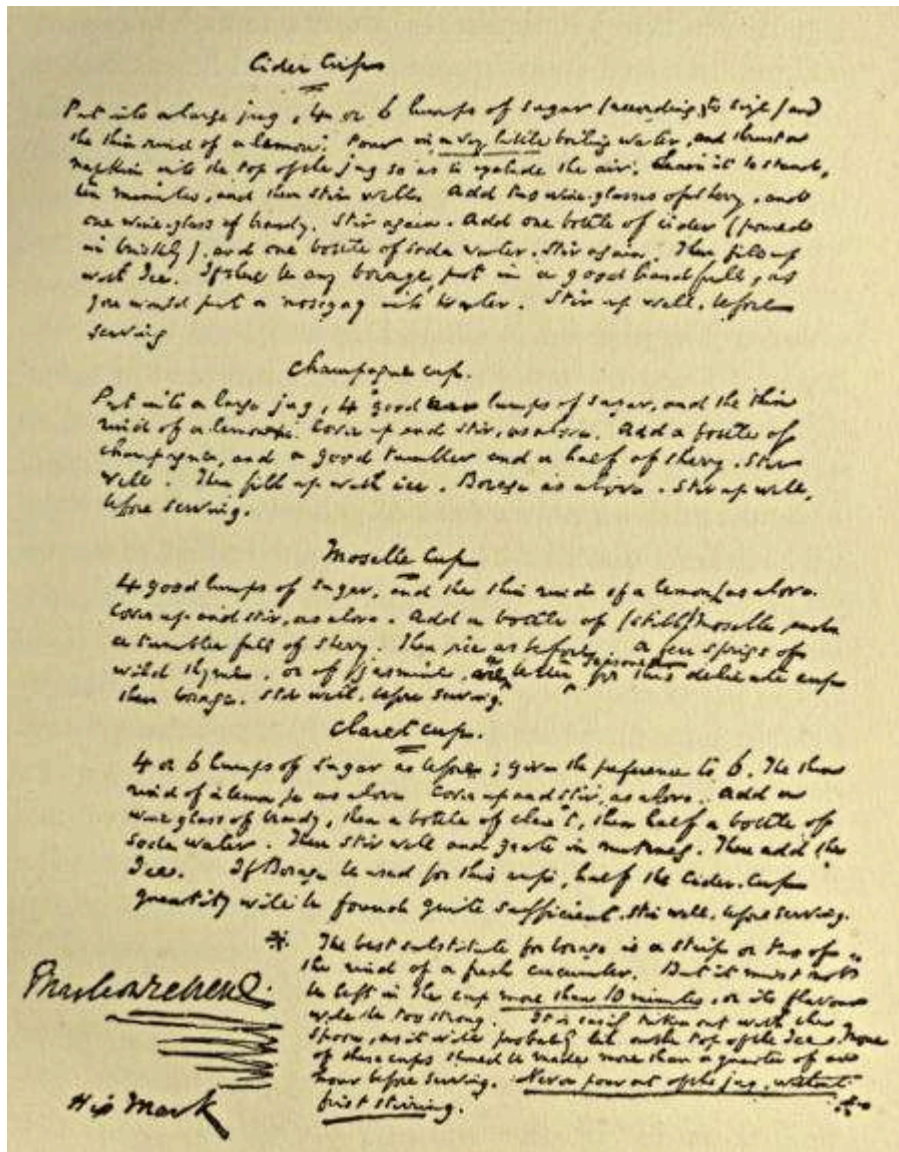 Cider Cup
Put into a large jug, 4 or 6 lumps of sugar (according to size) and
the thin rind of a lemon. Pour in a very little boiling water, and thrust a
napkin into the top of the jug so as to exclude the air. Leave it to stand,
ten minutes, and then stir well. Add two wine-glasses of sherry, and
one wine-glass of brandy. Stir again. Add one bottle of cider (poured
in briskly), and one bottle of soda water. Stir again. Then fill up
with Ice. If there be any borage, put in a good handfull, as
you would put a nosegay into water. Stir up well, before
serving
Champagne cup.
Put into a large jug, 4 good lumps of sugar, and the thin
rind of a lemon. Cover up and stir, as above. Add a bottle of
champagne, and a good tumbler and a half of sherry. Stir
well. Then fill up with ice. Borage as above. Stir up well,
before serving.
Moselle Cup
4 good lumps of sugar, and the thin rind of a lemon, as above.
Cover up and stir, as above. Add a bottle of (still) Moselle and
a tumbler full of sherry. Then ice as before. A few sprigs of
wild thyme, or of jasmine, are better for this delicate cup
than borage. Stir well, before serving.
Claret Cup.
4 or 6 lumps of sugar as before; given the preference to 6. The thin
rind of a lemon as above Cover up and stir, as above. Add a
wine glass of brandy, then a bottle of claret, then half a bottle of
soda water. Then stir well and grate in nutmeg. Then add the
Ice. If Borage be used for this cup, half the Cider-Cup
quantity will be found quite sufficient. Stir well, before serving.
* The best substitute for borage is a strip or two of
the rind of a fresh cucumber. But it must not
be left in the cup more than 10 minutes, or its flavour
will be too strong. It is easily taken out with the
spoon, as it will probably be on the top of the Ice. None
of these cups should be made more than a quarter of an
hour before serving. Never pour out of the jug, without
first stirring.
His Mark